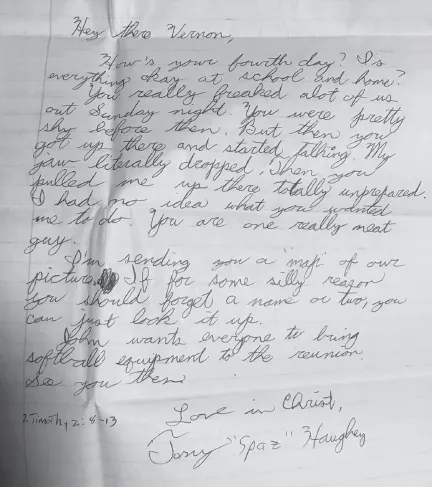 Hey there Vernon,
How's your fourth day? Is
everything okay at school and home?
You really freaked alot of us
out Sunday night. You were pretty
shy before then. But then you
got up there and started talking. My
jaw literally dropped. Then you
pulled me up there totally unprepared.
I had no idea what you wanted
me to do. You are one really neat
guy.
I'm sending you a "map" of our
picture. If for some silly reason
you should forget a name or two, you
can just look it up.
John wants everyone to bring
softball equipment to the reunion.
See you then.
Love in Christ,
2 Timothy 2:8-13
Tony "Spaz" Haughey